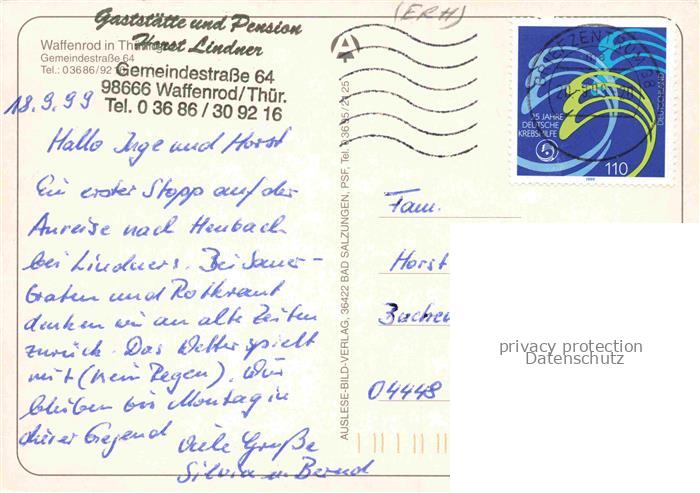 (ERH)
Gaststätte und Pension
Horst Lindner
Gemeindestraße 64
98666 Waffenrod/Thür.
Tel. 0 36 86 / 30 92 16
Waffenrod in
Gemeindestraße 64
Tel.: 03686/92
18.9.99
Hallo Inge und Horst
Ein erster Stopp auf der
Anreise nach Heubach
bei Lindners. Bei Sauer-
braten und Rotkraut
denken wir an alte Zeiten
zurück. Das Wetter spielt
mit (kein Regen). Wir
bleiben bis Montag in
dieser Gegend
Viele Grüße
Silvia u. Bernd
AUSLESE-BILD-VERLAG, 36422 BAD SALZUNGEN, PSF, Tel. 03695/21 25
25 JAHRE
DEUTSCHE
KREBSHILFE
110
DEUTSCHLAND
1999
BRIEFZENTRUM 98
Fam.
Horst
Buchen
04448
privacy protection
Datenschutz